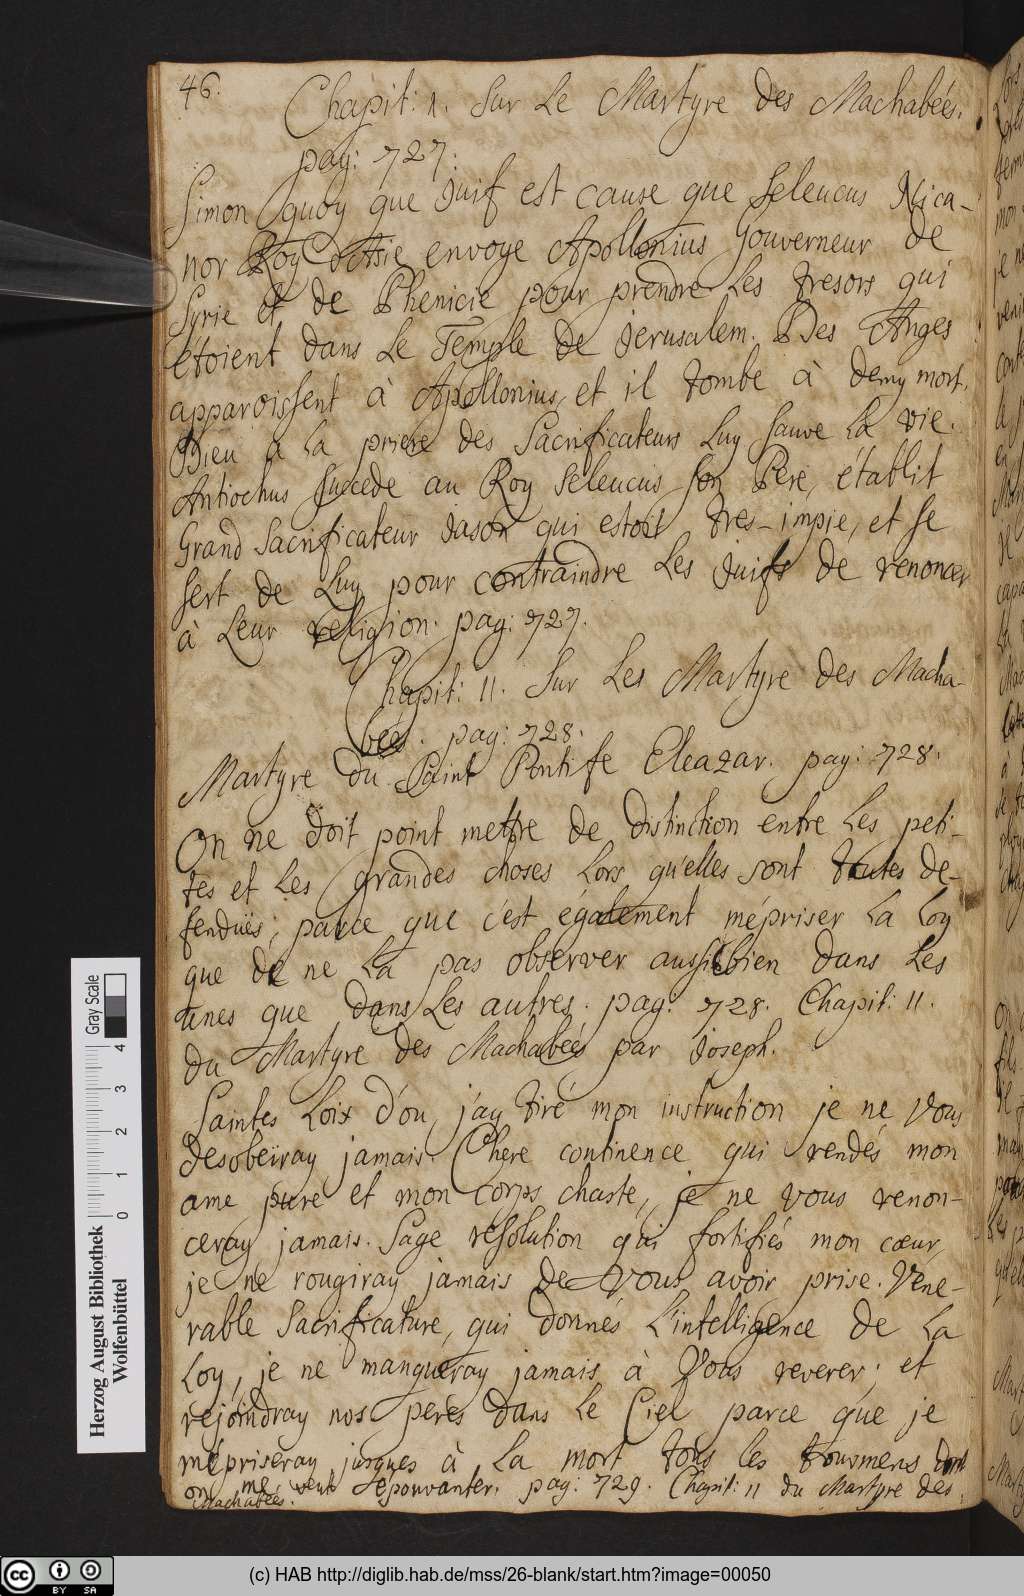 46.
Chapit: 1. Sur Le Martyre des Machabées.
pag: 727.
Simon quoy que Juif est cause que Seleucus Nica-
nor Roy d'Asie envoye Apollonius Gouverneur de
Syrie et de Phenicie pour prendre les tresors qui
étoient dans Le Temple de Jerusalem. Des Anges
apparoissent à Apollonius, et il tombe à demy mort.
Dieu à la priere des Sacrificateurs Luy sauve La vie.
Antiochus succede au Roy Seleucus son Pere, établit
Grand Sacrificateur Jason qui estoit tres-impie, et se
sert de Luy pour contraindre Les Juifs de renoncer
à Leur religion. pag: 727.
Chapit: 11. Sur Les Martyre des Macha-
bées. pag: 728.
Martyre du Saint Pontife Eleazar. pag: 728.
On ne doit point mettre de distinction entre les peti-
tes et Les grandes choses Lors qu'elles sont toutes de-
fenduës; parce que c'est également mépriser La Loy
que de ne La pas observer aussi bien dans Les
unes que dans Les autres. pag: 728. Chapit: 11.
du Martyre des Machabées par Joseph.
Saintes Loix d'ou j'ay tiré mon instruction je ne vous
desobeïray jamais. Chere continence qui rendés mon
ame pure et mon corps chaste, je ne vous renon-
ceray jamais. Sage resolution qui fortifiés mon cœur,
je ne rougiray jamais de vous avoir prise. Vene-
rable Sacrificature, qui donnés L'intelligence de La
Loy, je ne manqueray jamais à Vous reverer; et
rejoindray nos peres dans Le Ciel parce que je
mépriseray jusques à La mort tous les tourmens dont
on me veut épouvanter. pag: 729. Chapit: 11 du Martyre des
Machabées.
Gray Scale
0 1 2 3 4
Herzog August Bibliothek
Wolfenbüttel
cc BY SA
(c) HAB http://diglib.hab.de/mss/26-blank/start.htm?image=00050